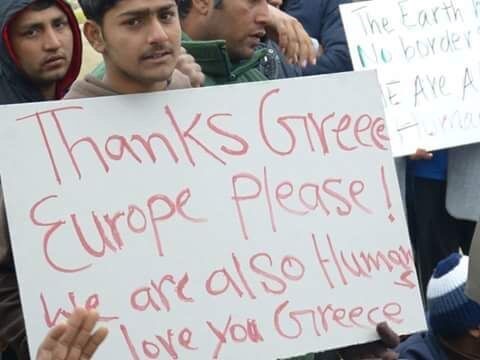 Thanks Greece
Europe Please!
We are also Human
love you Greece
The Earth
No border
WE Are A
Huma